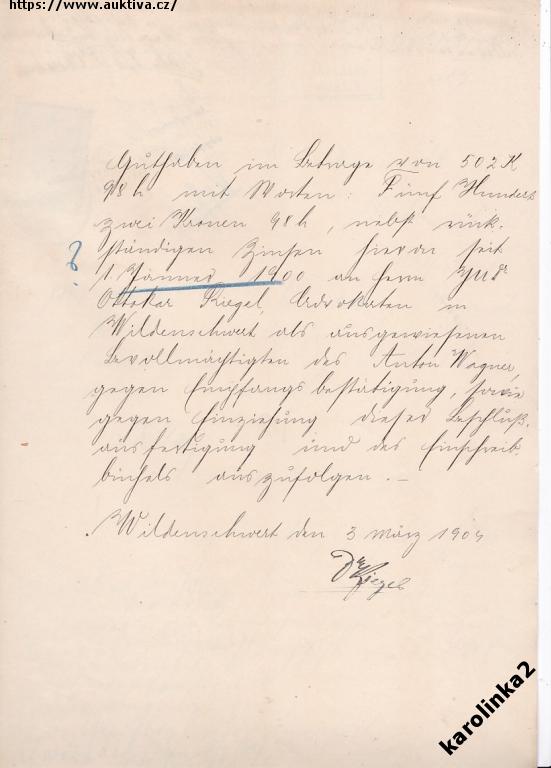 https://www.auktiva.cz/
Guthaben im Betrage von 502 K
98 h mit Worten: Fünf Hundert
zwei Kronen 98 h, nebst rück-
ständigen Zinsen hievon seit
?
1. Jänner 1900 an Herrn JUDr
Ottokar Kiegel, Advokaten in
Wildenschwert als ausgewiesenen
Bevollmächtigten des Anton Wagner,
gegen Empfangsbestätigung, sowie
gegen Einziehung dieser Beschluß-
ausfertigung und des Einschreib-
büchels auszufolgen. –
Wildenschwert den 3 März 1904
Dr Kiegel
karolinka2